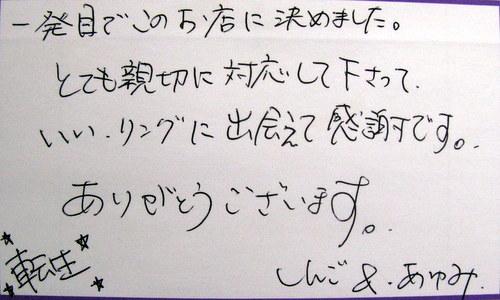 一発目でこのお店に決めました。
とても親切に対応して下さって、
いい、リングに出会えて感謝です。
ありがとうございます。
転生
しんご & あゆみ